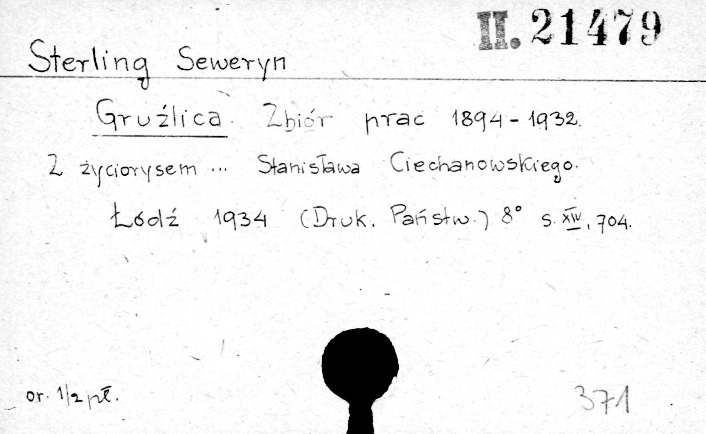 II. 21479
Sterling Seweryn
Gruźlica. Zbiór prac 1894-1932.
Z życiorysem ... Stanisława Ciechanowskiego.
Łódź 1934 (Druk. Państw.) 8° s. XIV, 704.
or. 1/2 pł.
371